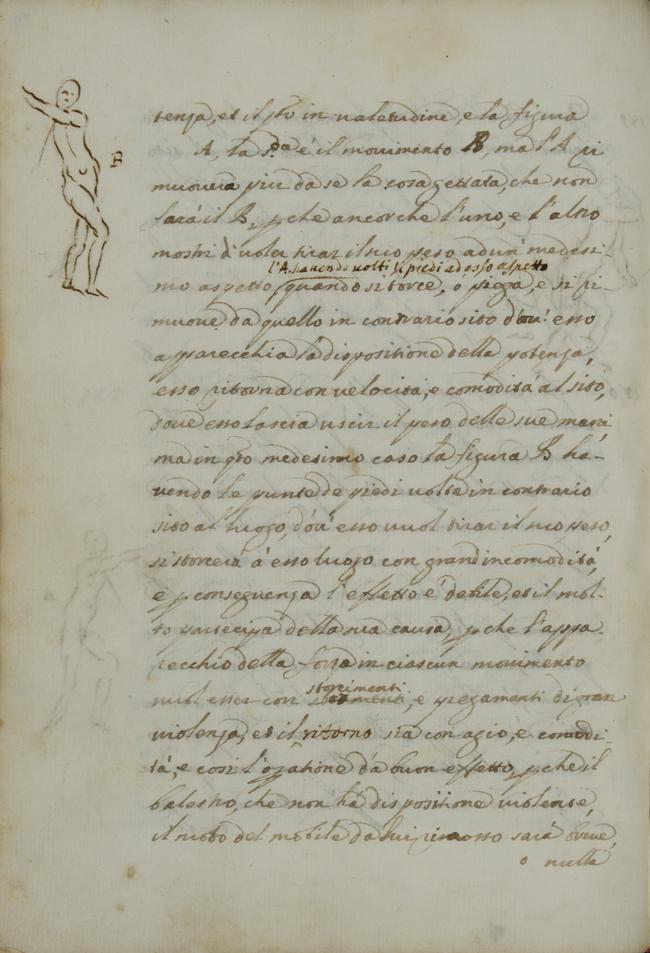 tenza, et il p.o in valetudine, e la figura
A, la s.da è il movimento B, ma l'A ri
muoverà più da se la cosa gettata, che non
farà il B, p che ancorche l'uno, e l'altro
mostri di voler tirar il suo peso ad un' medesi-
l'A. havendo volti li piedi ad esso aspetto
mo aspetto quando si torce, o piega, e si ri-
muove da quello in contrario sito d'ou' esso
apparecchia la dispositione della potenza,
esso ritorna con velocità, e comodità al sito,
dove esso lascia uscir il peso delle sue mani
ma in q.to medesimo caso la figura B ha-
vendo le punte de piedi volte in contrario
sito al luogo, d'ou' esso vuol tirar il suo peso,
si storcerà à esso luogo con grand incomodità,
e p conseguenza l'effetto è debile, et il mo-
to partecipa della sua causa, p che l'appa-
recchio della forza in ciascun movimento
storcimenti
vuol esser con, e piegamenti di gran
violenza, et il ritorno sia con agio, e comodi-
tà, e così l'operatione dà buon effetto, p che il
balestro, che non hà dispositione violente,
il moto del mobile da lui rimosso sarà breve,
o nulla
B